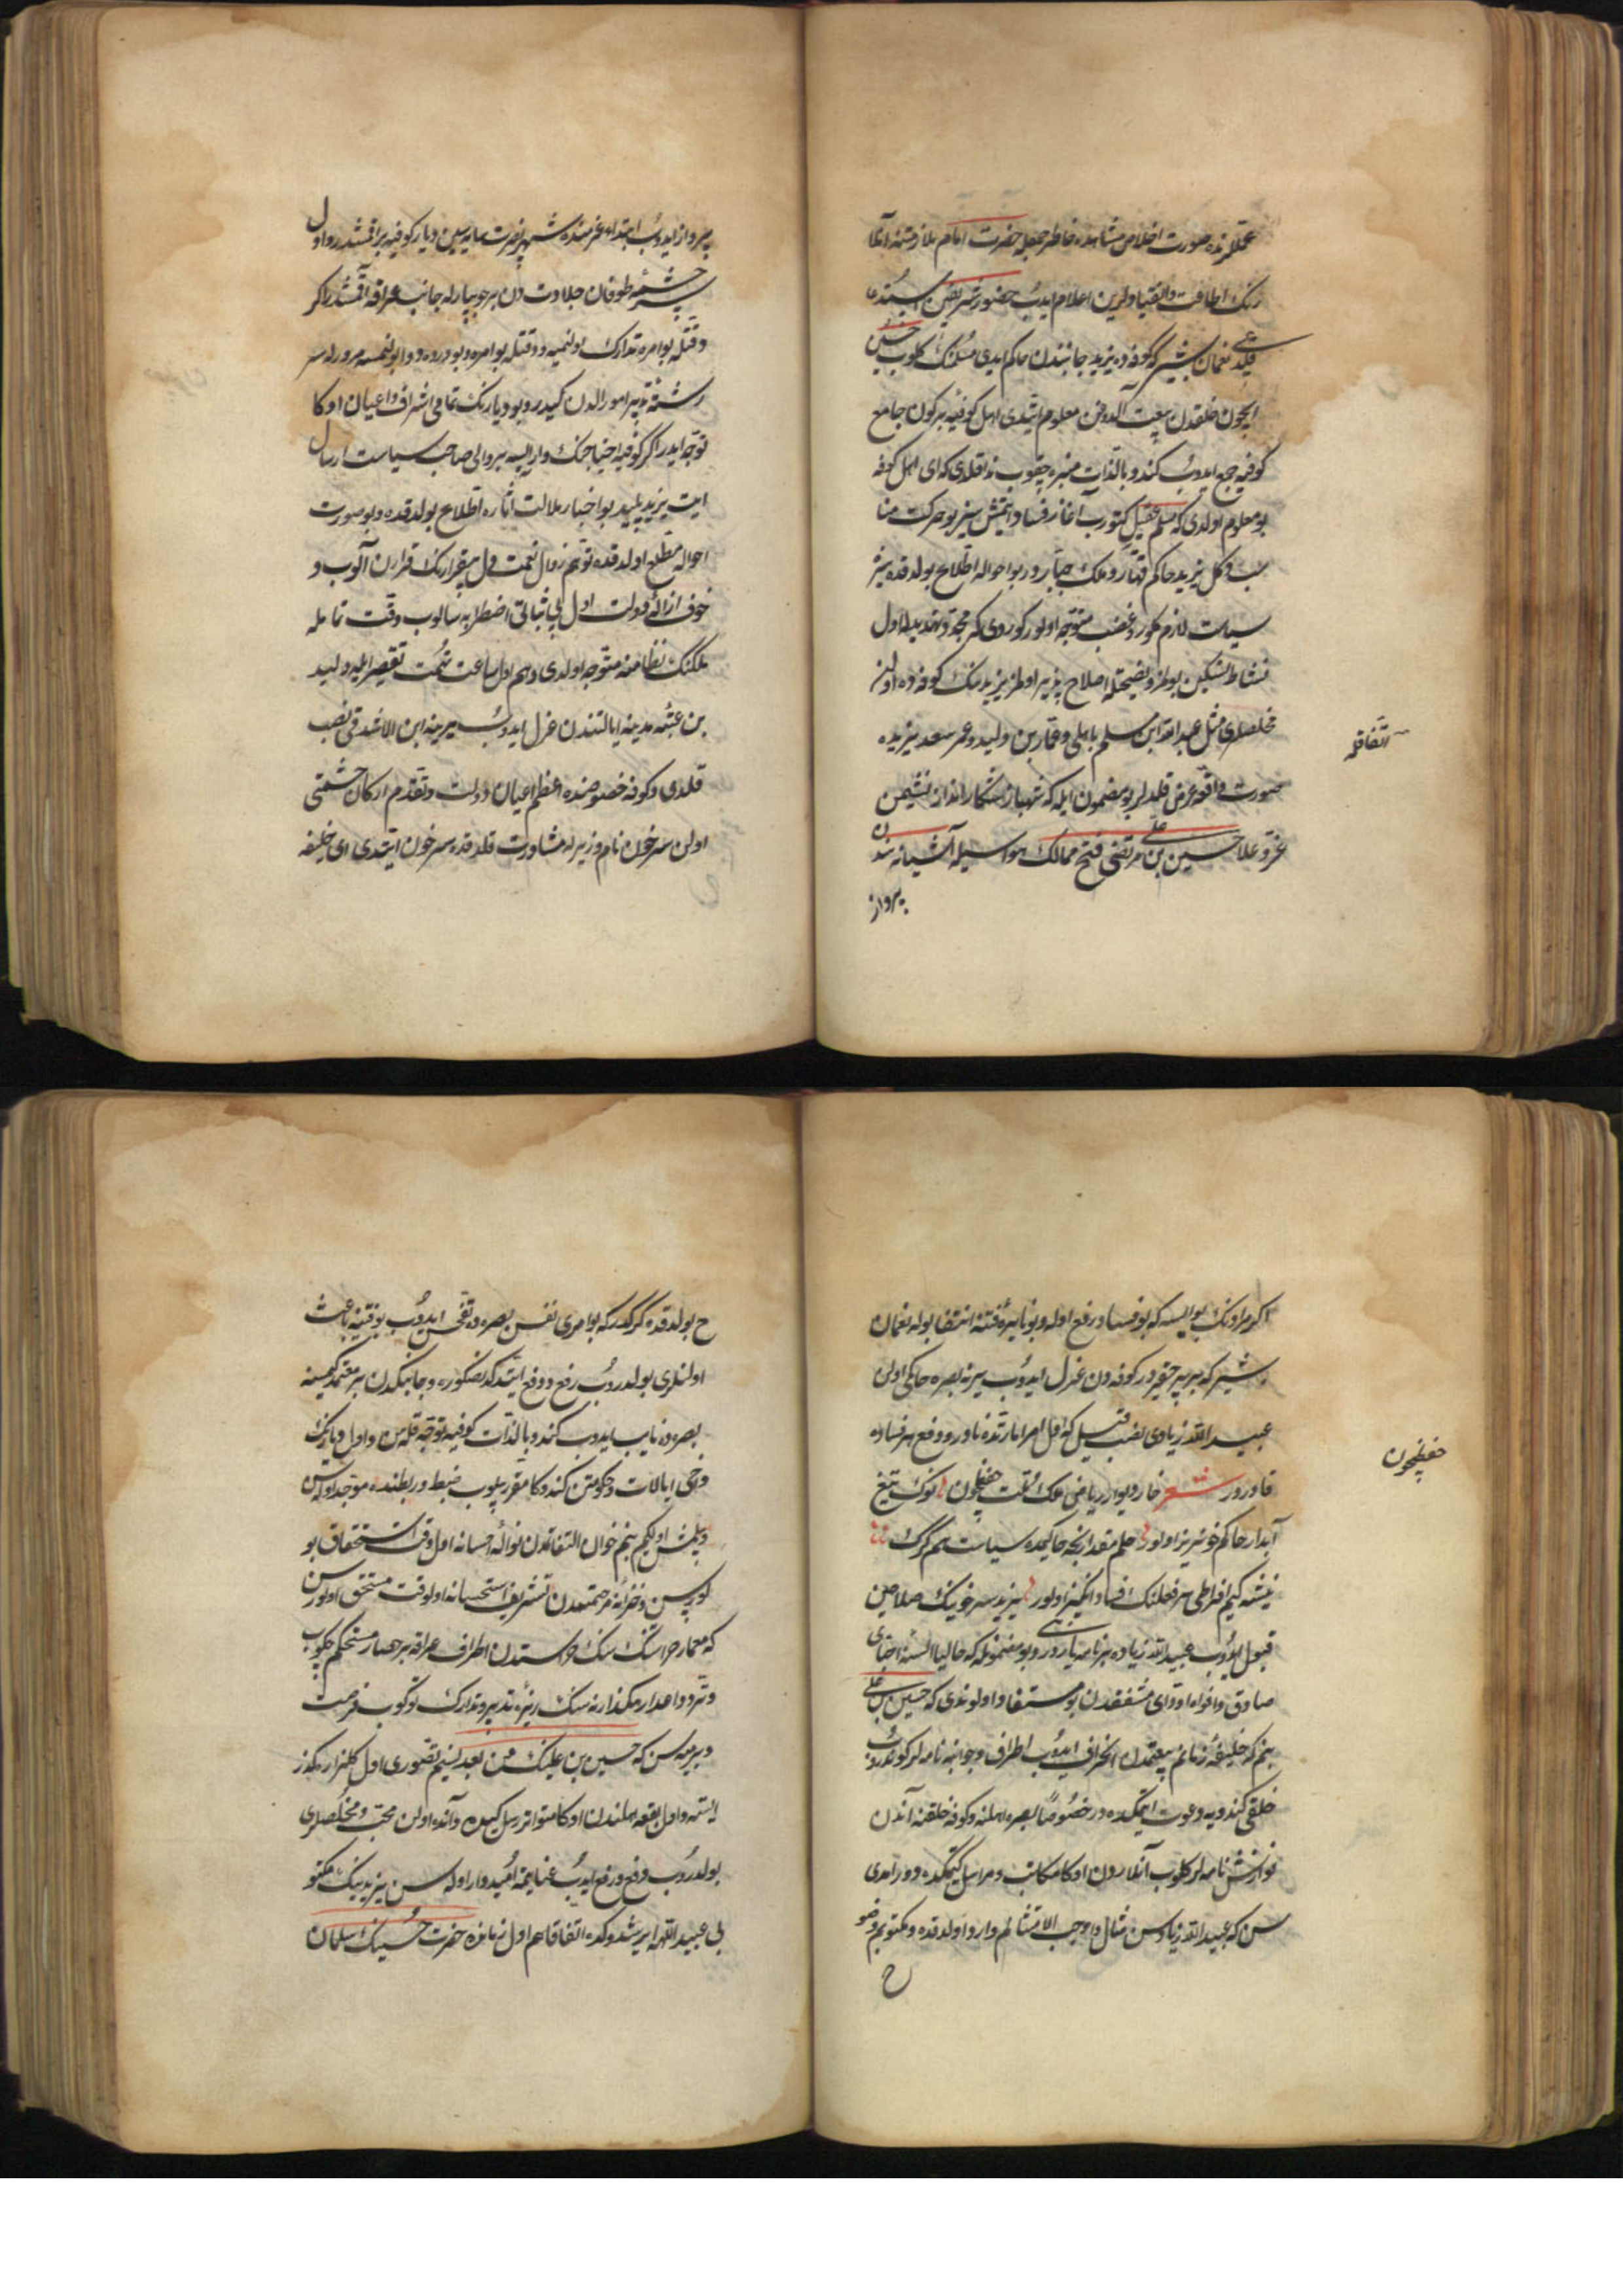 عملارنده صورت اخلاص مشاهده خاطر جمعله حضرت امام ملازمتنه آنلارنك
اطاعت و انقیادلرین اعلام ایدوب حضور شریفین استدعی
قلدی نعمان بشیر که کوفه ده یزید جانبندن حاکم ایدی مسلمنك کلوب حسین
ایچون خلقدن بیعت آلدوغن معلوم ایتدی اهل کوفیه بر کون جامع
کوفیه جمع ایدوب کندو بالذات منبره چقوب ندا قلدی که ای اهل کوفه
بو معلوم اولدی که مسلم عقیل کتورب آغاز فساد ایتمش سیز بو حرکت منا
سب دکل یزید حاکم قهار و ملك جبار در بو احواله اطلاع بولدقده سیزه
سیاست لازم کلور و غضب متوجه اولور کوردی که مجرد تهدیدله اول
نشاط تسکین بولمز و نصیحتله اصلاح پذیر اولمز یزیدنك کوفه ده اولن
مخلصلری مثل عبدالله ابن مسلم باهلی و عمار بن ولید و عمر سعد یزیده
اتفاقله
صورت واقعه عرض قلدیلر بو مضمون ایله که شهباز شکار انداز نشیمن
عز و علا حسین بن علی مرتضی فتح ممالك هواسیله آشیانه سندن
پرواز
پرواز ایدوب ابتداء عزمنده شهپر نصرت سایه سین دیار کوفیه براقمشدر و اول
سرچشمه طوفان جلادت دن بر جویبارله جانب عراقه آقمشدر اکر
وقتله بو امره تدارك بولنمیه و وقتله بو امره و بو درده دوا بولنمسه مرورله سر
رشته تدبیر امور الدن کیدر و بو دیارنك تمامی اشراف و اعیان اوکا
توجه ایدر اکر کوفیه احتیاجنك وار ایسه بر والی صاحب سیاست ارسال
ایت یزید پلید بو اخبار ملالت اثاره اطلاع بولدقده و بو صورت
احواله مطلع اولدقده توهم زوال نعمت دل بیقرارنك قرارن آلوب و
خوف ازاله دولت اول بی ثباتی اضطرابه سالوب وقت تمامله
ملکنك نظامنه متوجه اولدی و هم اول ساعت تهمت تقصیر ایله ولید
بن عتبه مدینه ایالتندن عزل ایدوب یرینه ابن الاشدقی نصب
قلدی و کوفه خصوصنده اعظم اعیان دولت و تقدم ارکان حشمتی
اولن سرخون نام وزیرله مشاورت قلدقده سرخون ایتدی ای خلیفه
اکر مرادنك بو ایسه که بو فساد رفع اوله و بو نائره فتنه انتفا بوله نعمان
بشیر که بر پیر حقیر در کوفه دن عزل ایدوب یرینه بصره حاکمی اولن
عبیدالله زیادی نصب قیل که اول امر امارتده نادر و دفع هر فساده
قادر در شعر خار دیوار ریاض ملك ملت حفظچون نوك تیغ
حفظیچون
آبدار حاکم خونریز اولور حلم مقدارنجه حاکمده سیاست هم کرك
نیشه کیم افراطی هر فعلنك فساد انکیز اولور یزید سرخونك صلاحین
قبول ایدوب عبیدالله زیاده بر نامه یازدی و بو مضمونله که حالیا السنه اخبار
صادق و افواه اودای مشفقدن بو مستفاد اولوندی که حسین بن علی
بنم که خلیفه زمانم بیعتمدن انحراف ایدوب اطراف و جوانبه نامه لر کوندروب
خلقی کندویه دعوت ایتمکده در خصوصا بصره اهلنه و کوفه خلقنه آندن
نوازش نامه لر کلوب آنلاردن اوکا مکاتب و مراسل کیتمکده در امدی
سن که عبیدالله زیادسن مثال واجب الامتثالم وارد اولدقده و مکتوبم وضو
ح
ح بولدقده کرکدر که بو امری نفس بصره ده تفحص ایدوب بو فتنیه باعث
اولنلری بولدروب رفع و دفع ایتدکدنصکره و جانبکدن بر معتمد کیمسه
بصره ده نایب ایدوب کندو بالذات کوفیه توجه قله سن و اول دیارنك
دخی ایالات و حکومتن کندوکا مقرر بیلوب ضبط و ربطنده موجد اوله سن
و بیلمش اول کیم بنم خوان التفاتمدن نواله احسانه اول وقت استحقاق بو
لورسن و خزانه مرحمتمدن تشریف استحسانه اول وقت مستحق اولورسن
که معمار حراستنك سنك حراستدن اطراف عراقه بر حصار مستحکم چکوب
و تردد اعدا رهکذارنه سنك ریزه تدبیر و تدارك توکوب فرصت
ویرمیه سن که حسین بن علینك من بعد نسیم تصوری اول کلزاره کذر
ایتمه و اول بقعه اهلندن اوکا متواتر رسل کیدن و آنده اولن محب و مخلصلری
بولدروب دفع و رفع ایدوب عنایتمه امیدوار اوله سن یزیدینك مکتو
بی عبیداللهه ایرشدوکده اتفاقا هم اول زمانده حضرت حسینك سلمان